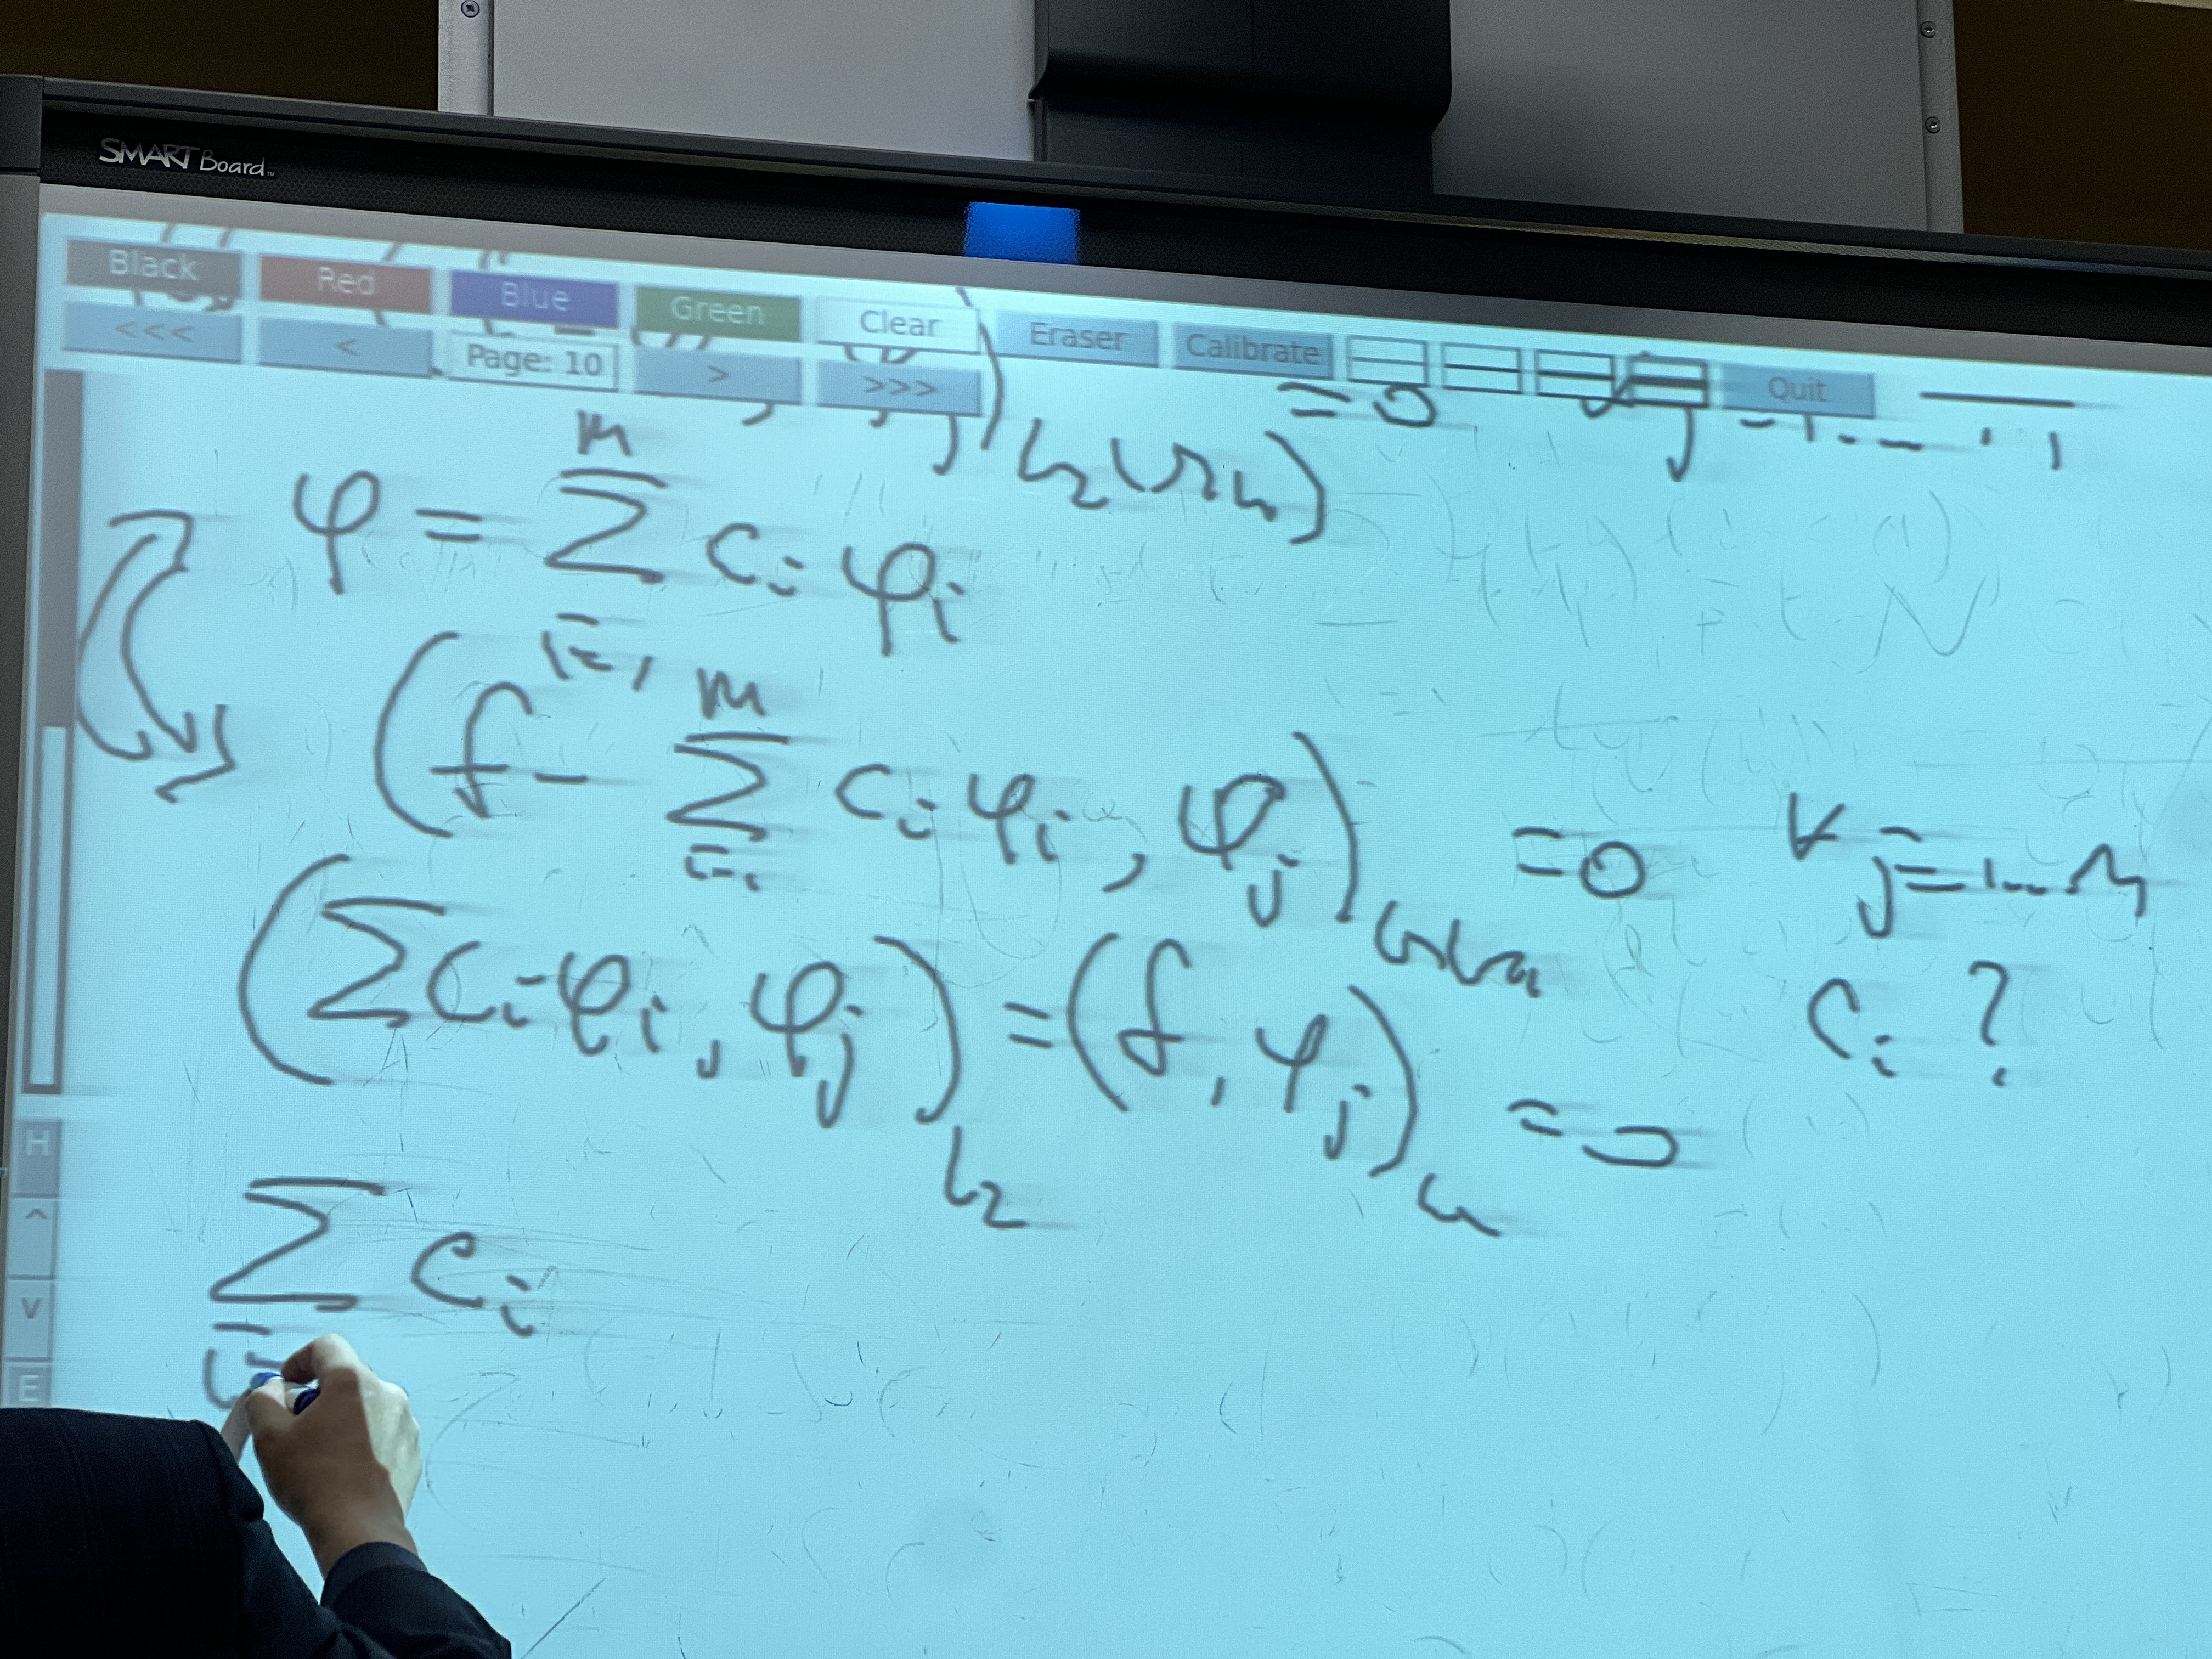 SMART Board™
Black Red Blue Green Clear Eraser Calibrate Quit
<<< < Page: 10 > >>>
)L₂(Ωₕ) = 0 ∀j = 1...
φ = Σᵢ₌₁ᵐ cᵢ φᵢ
(f - Σᵢ₌₁ᵐ cᵢ φᵢ, φⱼ) = 0 ∀ j = 1...m
(Σ cᵢ φᵢ, φⱼ)L₂ = (f, φⱼ) = 0 cᵢ ?
Σ cᵢ
H
^
V
E